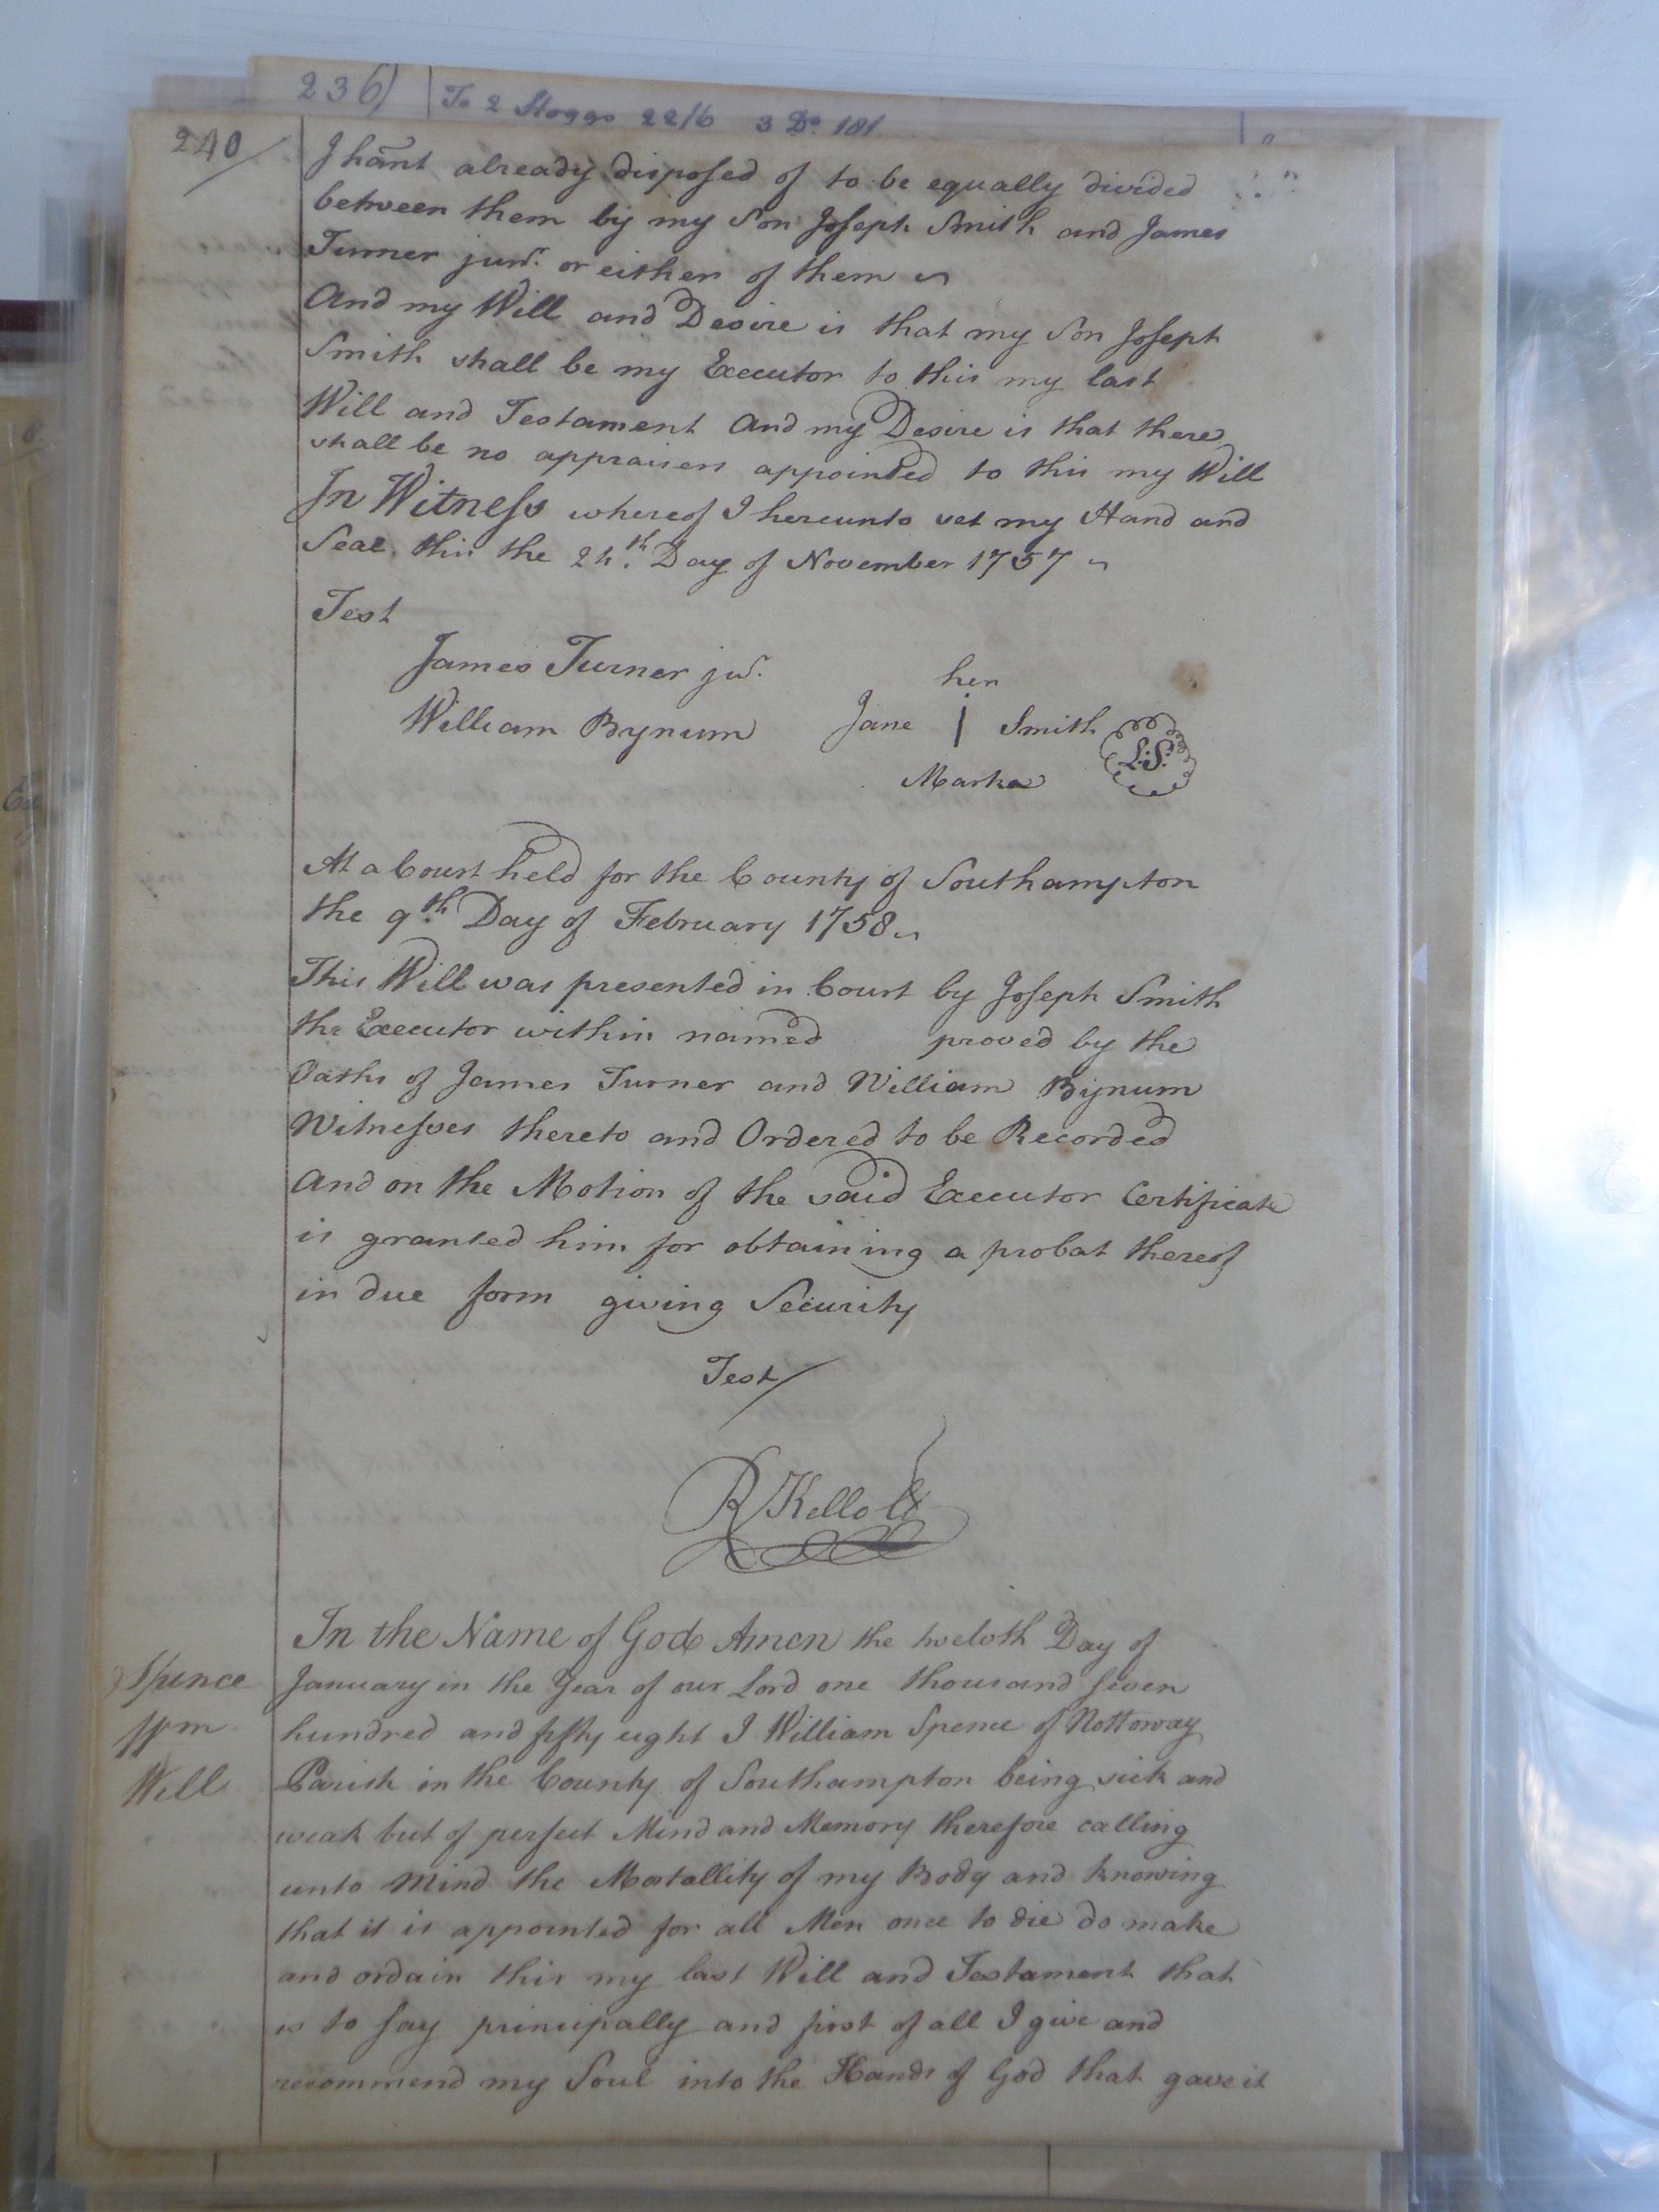 236) To 2 Hoggs 22/6 3 Do 18/
240/
I hant already disposed of to be equally divided
between them by my Son Joseph Smith and James
Turner junr. or either of them
And my Will and Desire is that my Son Joseph
Smith shall be my Executor to this my last
Will and Testament And my Desire is that there
shall be no appraisers appointed to this my Will
In Witness whereof I hereunto set my Hand and
Seal this the 24th. Day of November 1757
Test
James Turner jur.
her
William Bynum Jane | Smith L.S.
Marke
At a Court held for the County of Southampton
the 9th. Day of February 1758
This Will was presented in Court by Joseph Smith
the Executor within named proved by the
Oaths of James Turner and William Bynum
Witnesses thereto and Ordered to be Recorded
And on the Motion of the said Executor Certificate
is granted him for obtaining a probat thereof
in due form giving Security
Test/
R Kello Cl
In the Name of God Amen the twelvth Day of
Spence January in the Year of our Lord one thousand Seven
Wm hundred and fifty eight I William Spence of Nottoway
Will Parish in the County of Southampton being sick and
weak but of perfect Mind and Memory therefore calling
unto Mind the Mortallity of my Body and knowing
that it is appointed for all Men once to die do make
and ordain this my last Will and Testament that
is to say principally and first of all I give and
recommend my Soul into the Hands of God that gave it